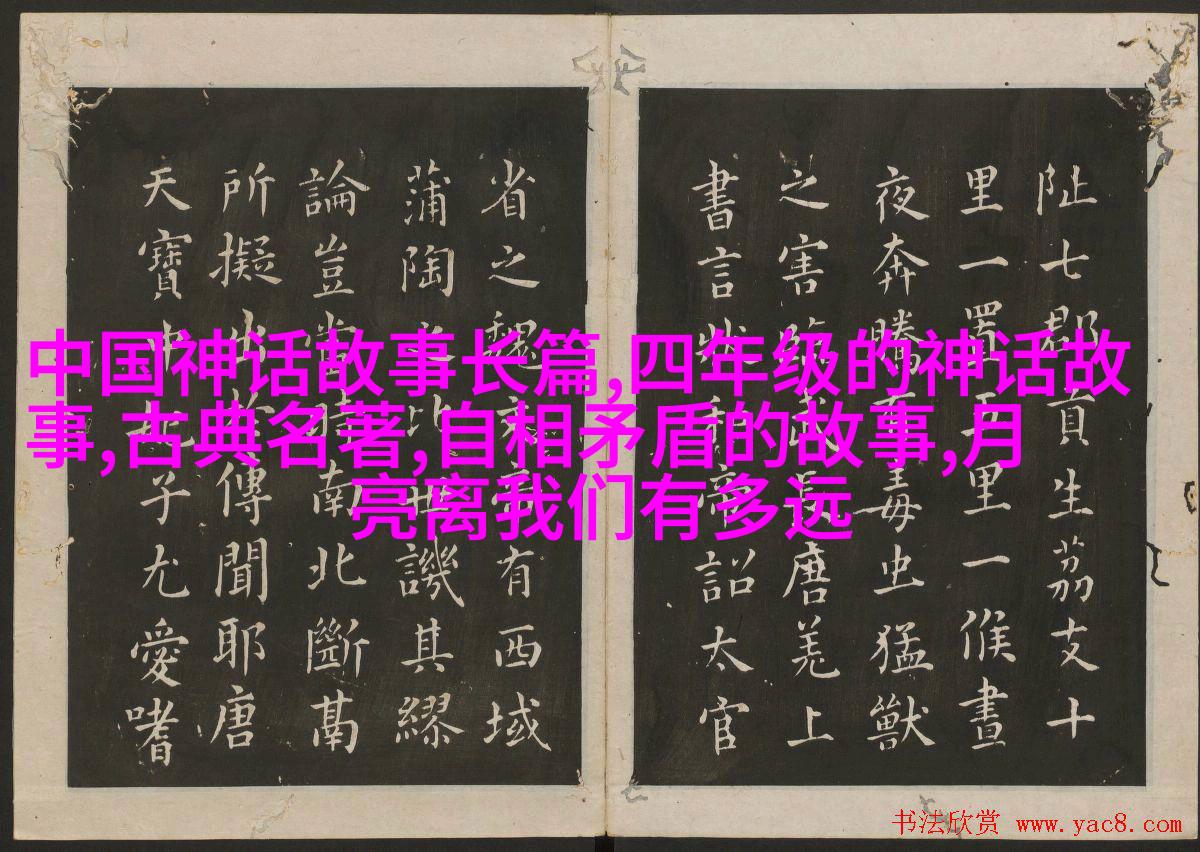 中国神话故事长篇,四年级的神话故
事,古典名著,自相矛盾的故事,月
亮离我们有多远
阯七郡貢生荔支十
里一置五里一候晝
夜奔騰有毒虫猛獸
之害臨武長唐羌上
書言狀和帝詔太官
省之魏文帝有西域
蒲陶之比世譏其繆
論豈當時南北斷鬲
所擬出於傳聞耶唐
天寶中妃子尤愛嗜
书法欣赏 www.yac8.com